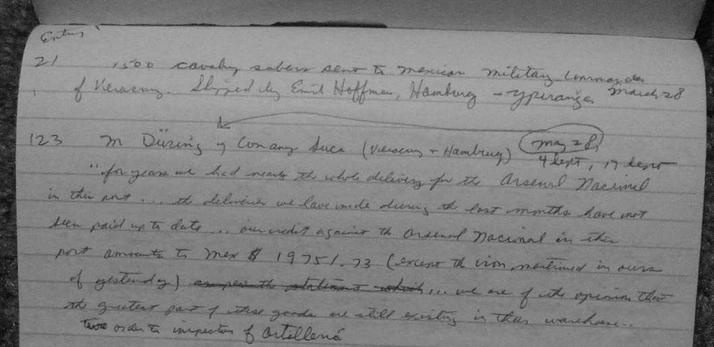 Entry
21 1500 cavalry sabers sent to Mexican Military Commander
of Veracruz. Shipped by Emil Hoffman, Hamburg - Ypiranga March 28
123 M Düring y Company Sucs (Veracruz + Hamburg) May 28,
4 Sept, 17 Sept
"for years we had nearly the whole delivery for the Arsenal Nacional
in this port ... the deliveries we have made during the last months have not
been paid up to date ... our credit against the Arsenal Nacional in this
port amounts to Mex $ 19751.73 (except the iron mentioned in ours
of yesterday) ... we are of the opinion that
the greatest part of these goods are still existing in their warehouse..
two orders to inspector of Artilleria